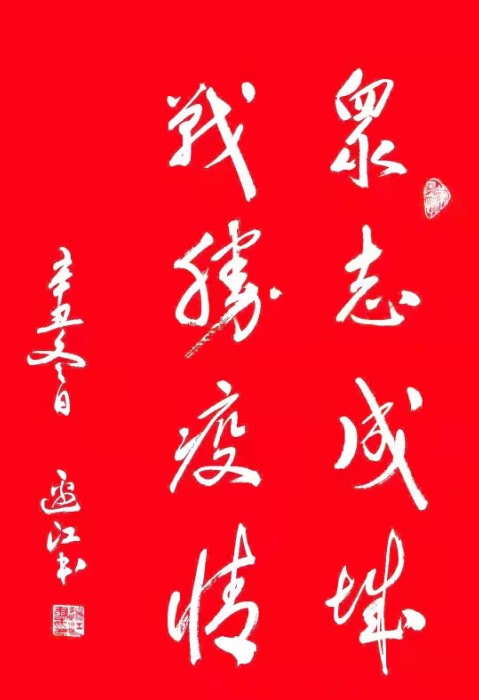 眾志成城
戰勝疫情
辛丑冬日
江书